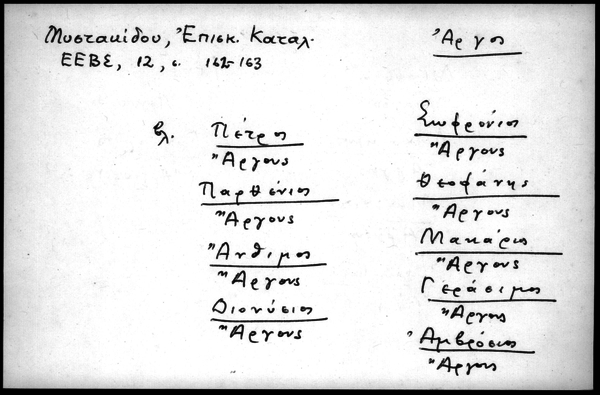 Μυστακίδου, Ἐπισκ. Καταλ.
ΕΕΒΣ, 12, σ. 162-163
Ἄργος
βλ.
Πέτρος
Ἄργους
Παρθένιος
Ἄργους
Ἄνθιμος
Ἄργους
Διονύσιος
Ἄργους
Σωφρόνιος
Ἄργους
Θεοφάνης
Ἄργους
Μακάριος
Ἄργους
Γεράσιμος
Ἄργους
Ἀμβρόσιος
Ἄργους